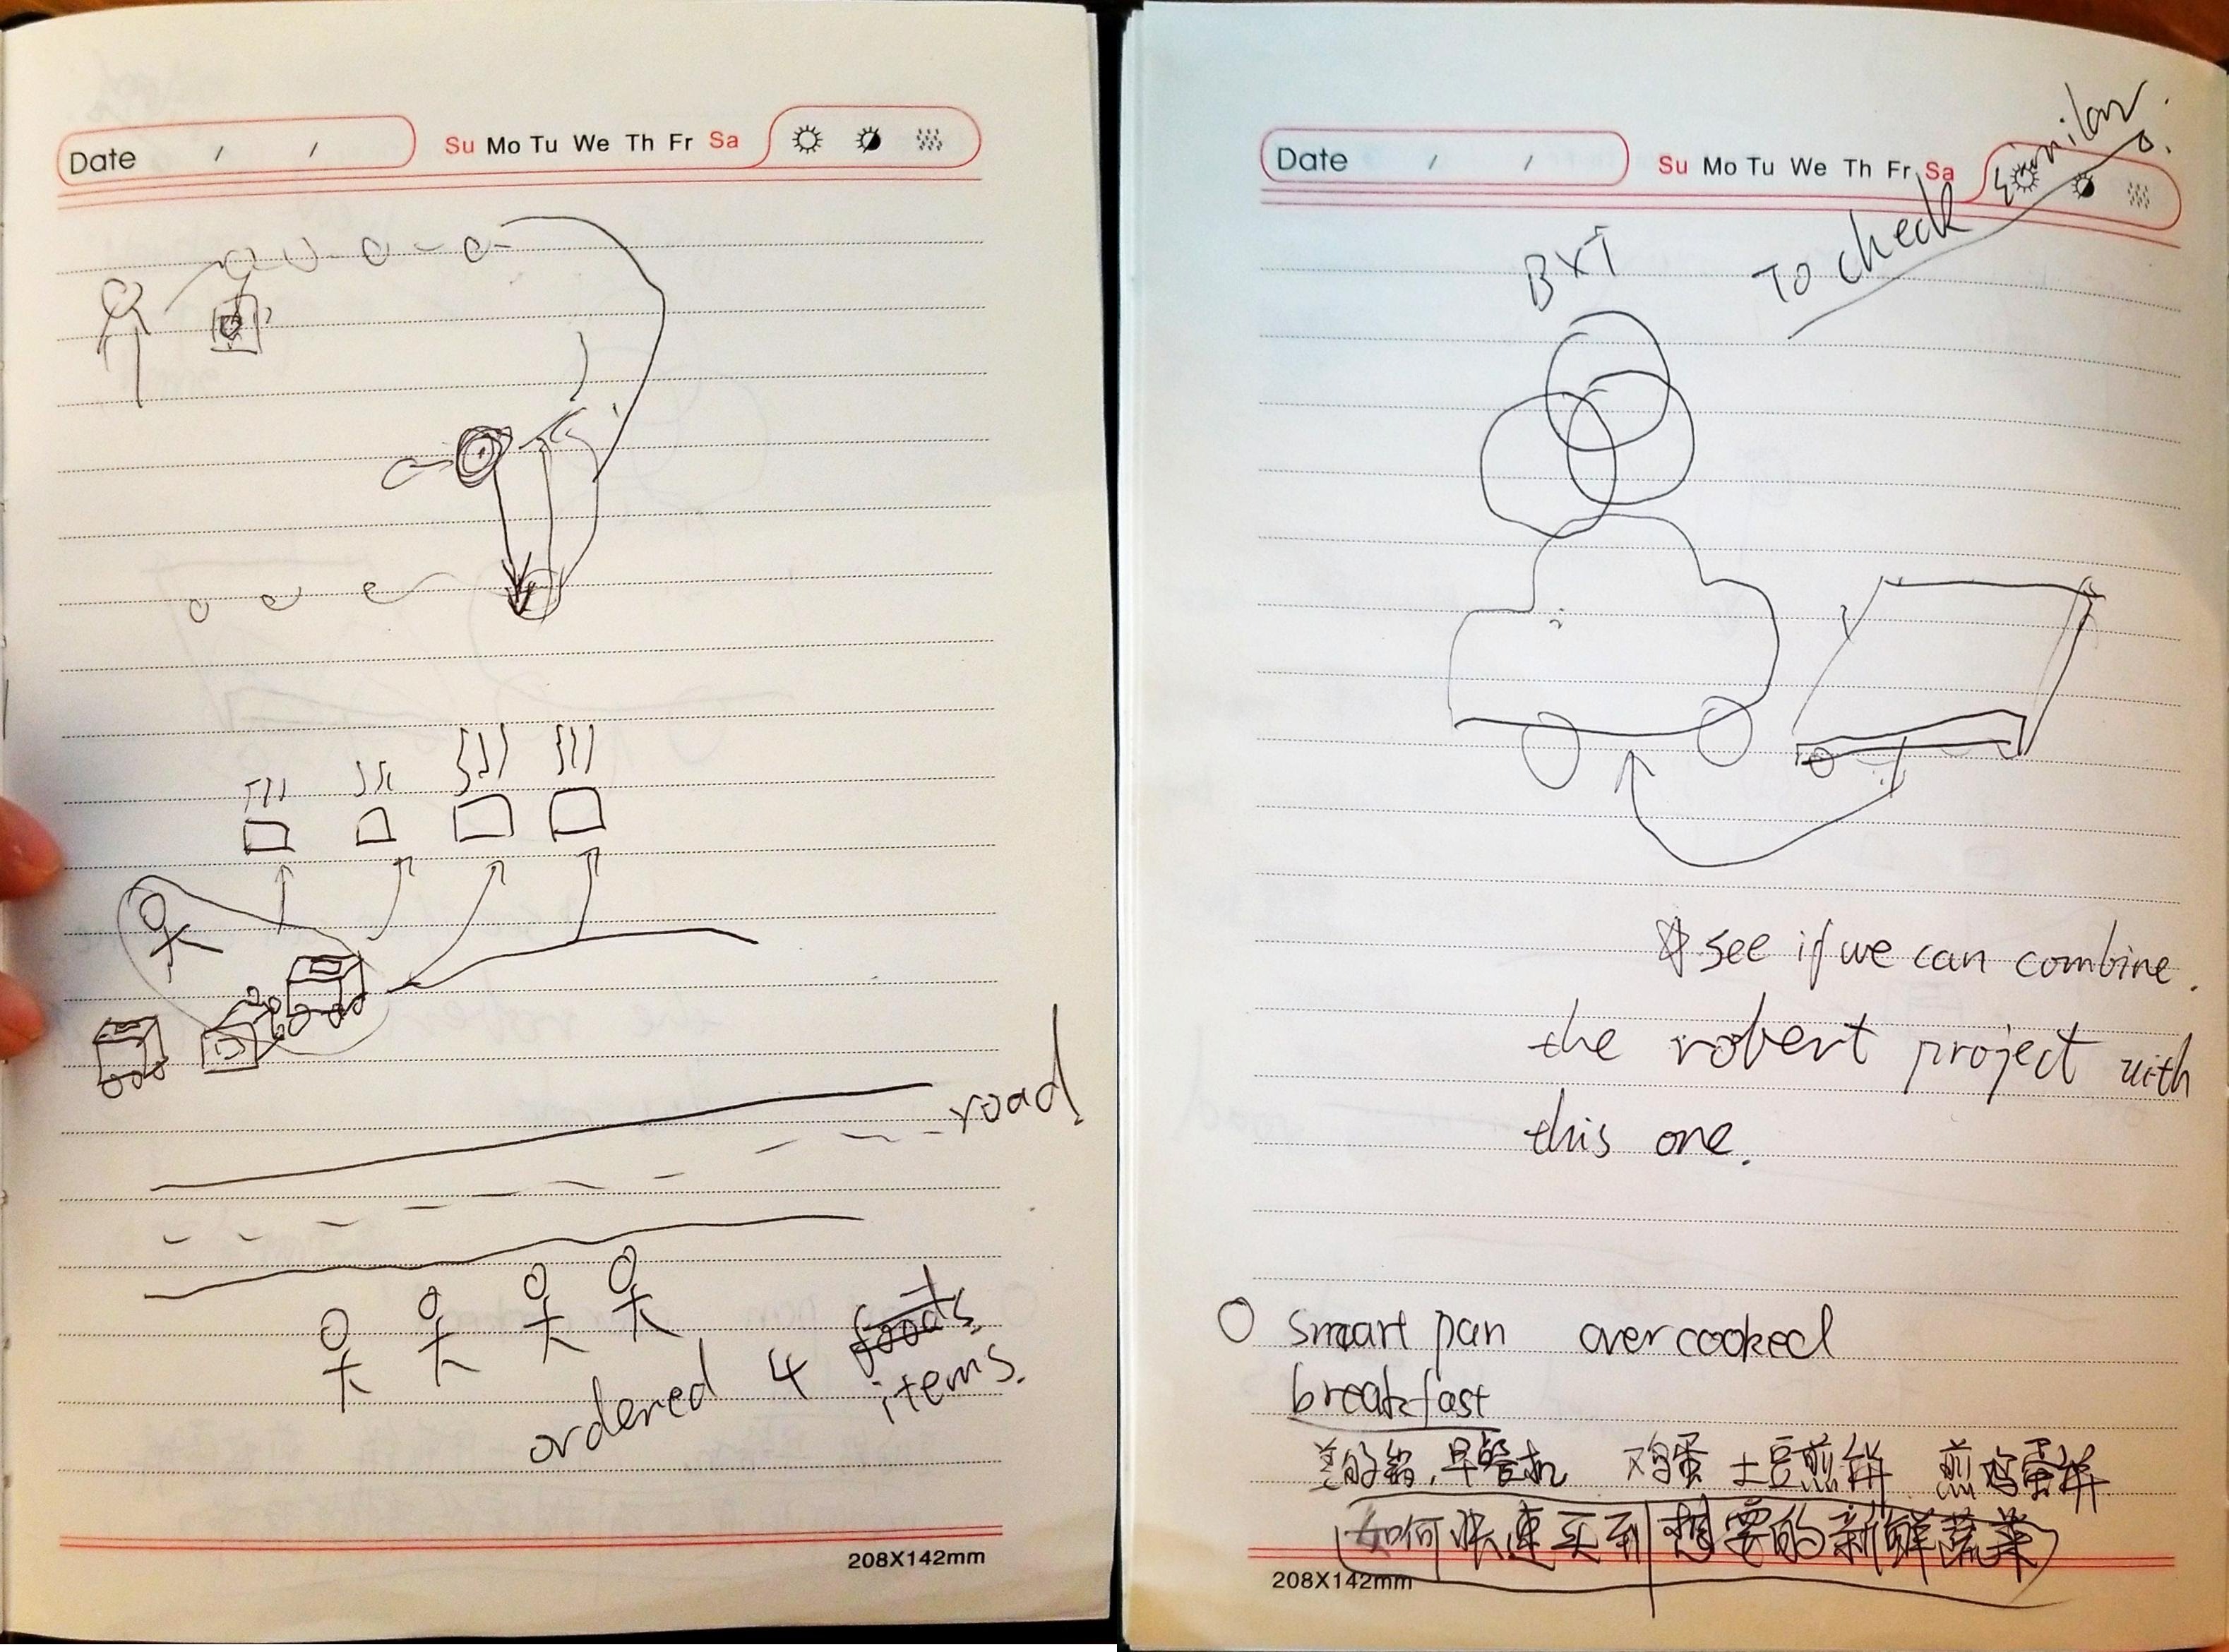 Date / /
Su Mo Tu We Th Fr Sa
road
ordered 4 foods
items.
208X142mm
Date / /
Su Mo Tu We Th Fr Sa
To check similar.
BXT
see if we can combine.
the robert project with
this one.
smart pan overcooked
breakfast
美的锅, 早餐机 鸡蛋 土豆煎饼 煎鸡蛋饼
如何快速买到想要的新鲜蔬菜
208X142mm